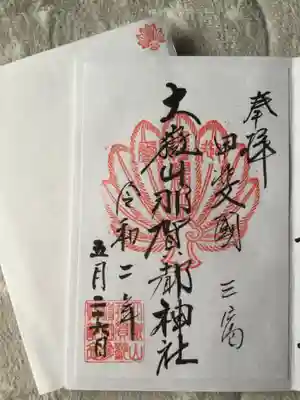 奉拝
甲斐國 三富
大嶽山那賀都神社
令和二年
五月二十六日